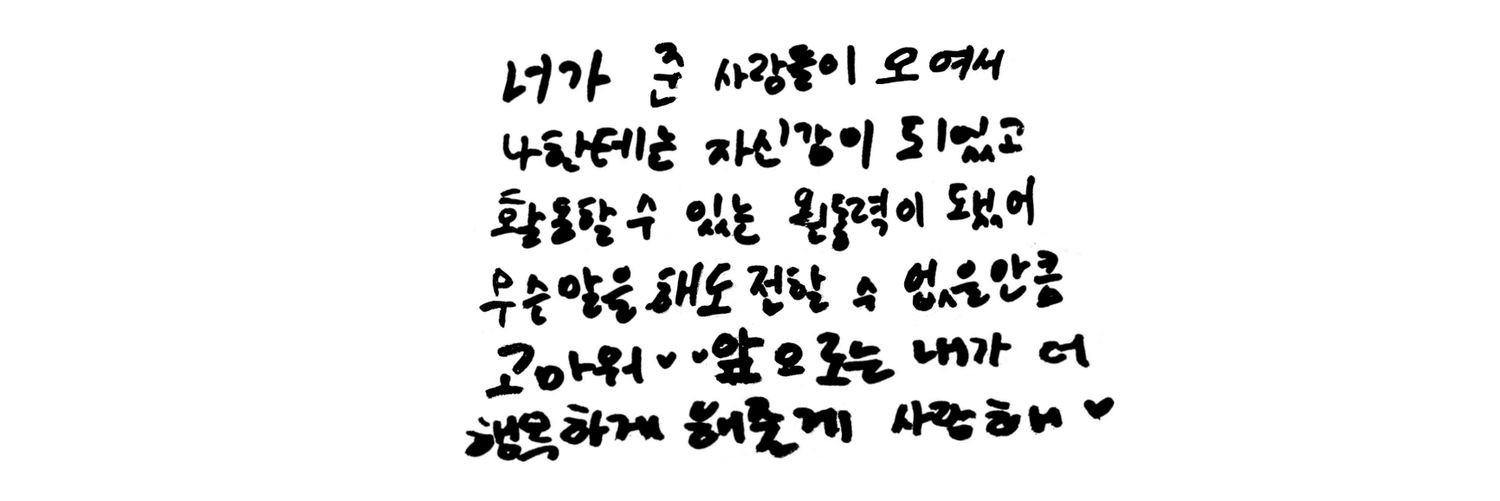 너가 준 사랑들이 모여서
나한테는 자신감이 되었고
활동할 수 있는 원동력이 됐어
무슨말을 해도 전할 수 없을만큼
고마워♥♥앞으로는 내가 더
행복하게 해줄게 사랑해♥